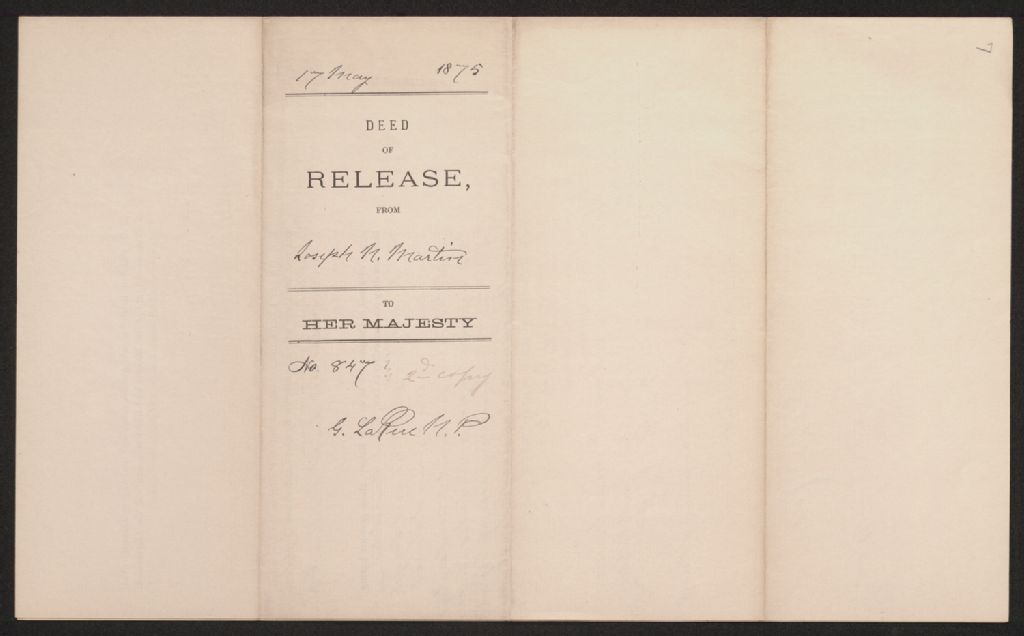 17 May 1875
DEED
OF
RELEASE,
FROM
Joseph N. Martin
TO
HER MAJESTY
No 847 2d copy
G. LaRue N.P.